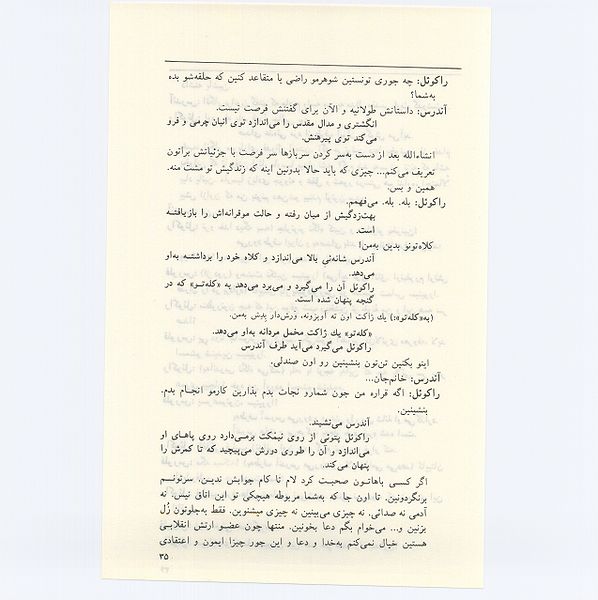 راکوئل: چه جوری تونستین شوهرمو راضی یا متقاعد کنین که حلقه‌شو بده
به‌شما؟
آندرس: داستانش طولانیه و الآن برای گفتنش فرصت نیست.
انگشتری و مدال مقدس را می‌اندازد توی انبان چرمی و فرو
می‌کند توی پیرهنش.
انشاءالله بعد از دست به‌سر کردن سربازها سر فرصت با جزئیاتش براتون
تعریف می‌کنم... چیزی که باید حالا بدونین اینه که زندگیش تو مشت منه.
همین و بس.
راکوئل: بله. بله. می‌فهمم.
بهت‌زدگیش از میان رفته و حالت موقرانه‌اش را بازیافته
است.
کلاه‌تونو بدین به‌من!
آندرس شانه‌ئی بالا می‌اندازد و کلاه خود را برداشته به‌او
می‌دهد.
راکوئل آن را می‌گیرد و می‌برد می‌دهد به «کله‌تو» که در
گنجه پنهان شده است.
(به«کله‌تو»:) یك ژاکت اون ته آویزونه، وَرش‌دار بدِش به‌من.
«کله‌تو» یك ژاکت مخمل مردانه به‌او می‌دهد.
راکوئل می‌گیرد می‌آید طرف آندرس
اینو بکنین تن‌تون بنشینین رو اون صندلی.
آندرس: خانم‌جان...
راکوئل: اگه قراره من جون شمارو نجات بدم بذارین کارمو انجام بدم.
بنشینین.
آندرس می‌نشیند.
راکوئل پتوئی از روی نیمکت برمی‌دارد روی پاهای او
می‌اندازد و آن را طوری دورش می‌پیچید که تا کمرش را
پنهان می‌کند.
اگر کسی باهاتون صحبت کرد لام تا کام جوابش ندین. سرتونم
برنگردونین. تا اون جا که به‌شما مربوطه هیچکی تو این اتاق نیس. نه
آدمی نه صدائی. نه چیزی می‌بینین نه چیزی میشنوین. فقط به‌جلوتون زُل
بزنین و... می‌خوام بگم دعا بخونین. منتها چون عضو ارتش انقلابی
هستین خیال نمی‌کنم به‌خدا و دعا و این جور چیزا ایمون و اعتقادی
۳۵